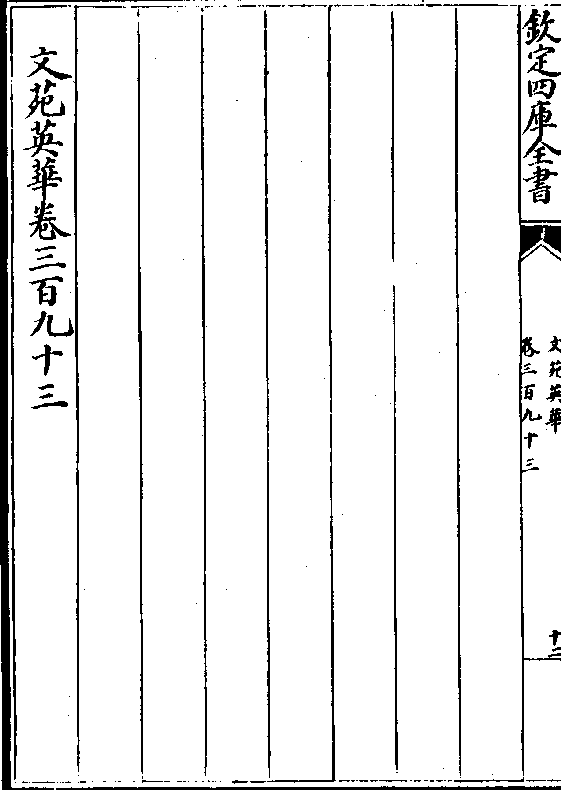 欽定四庫全書
文苑英華
卷三百九十三
十二
文苑英華卷三百九十三